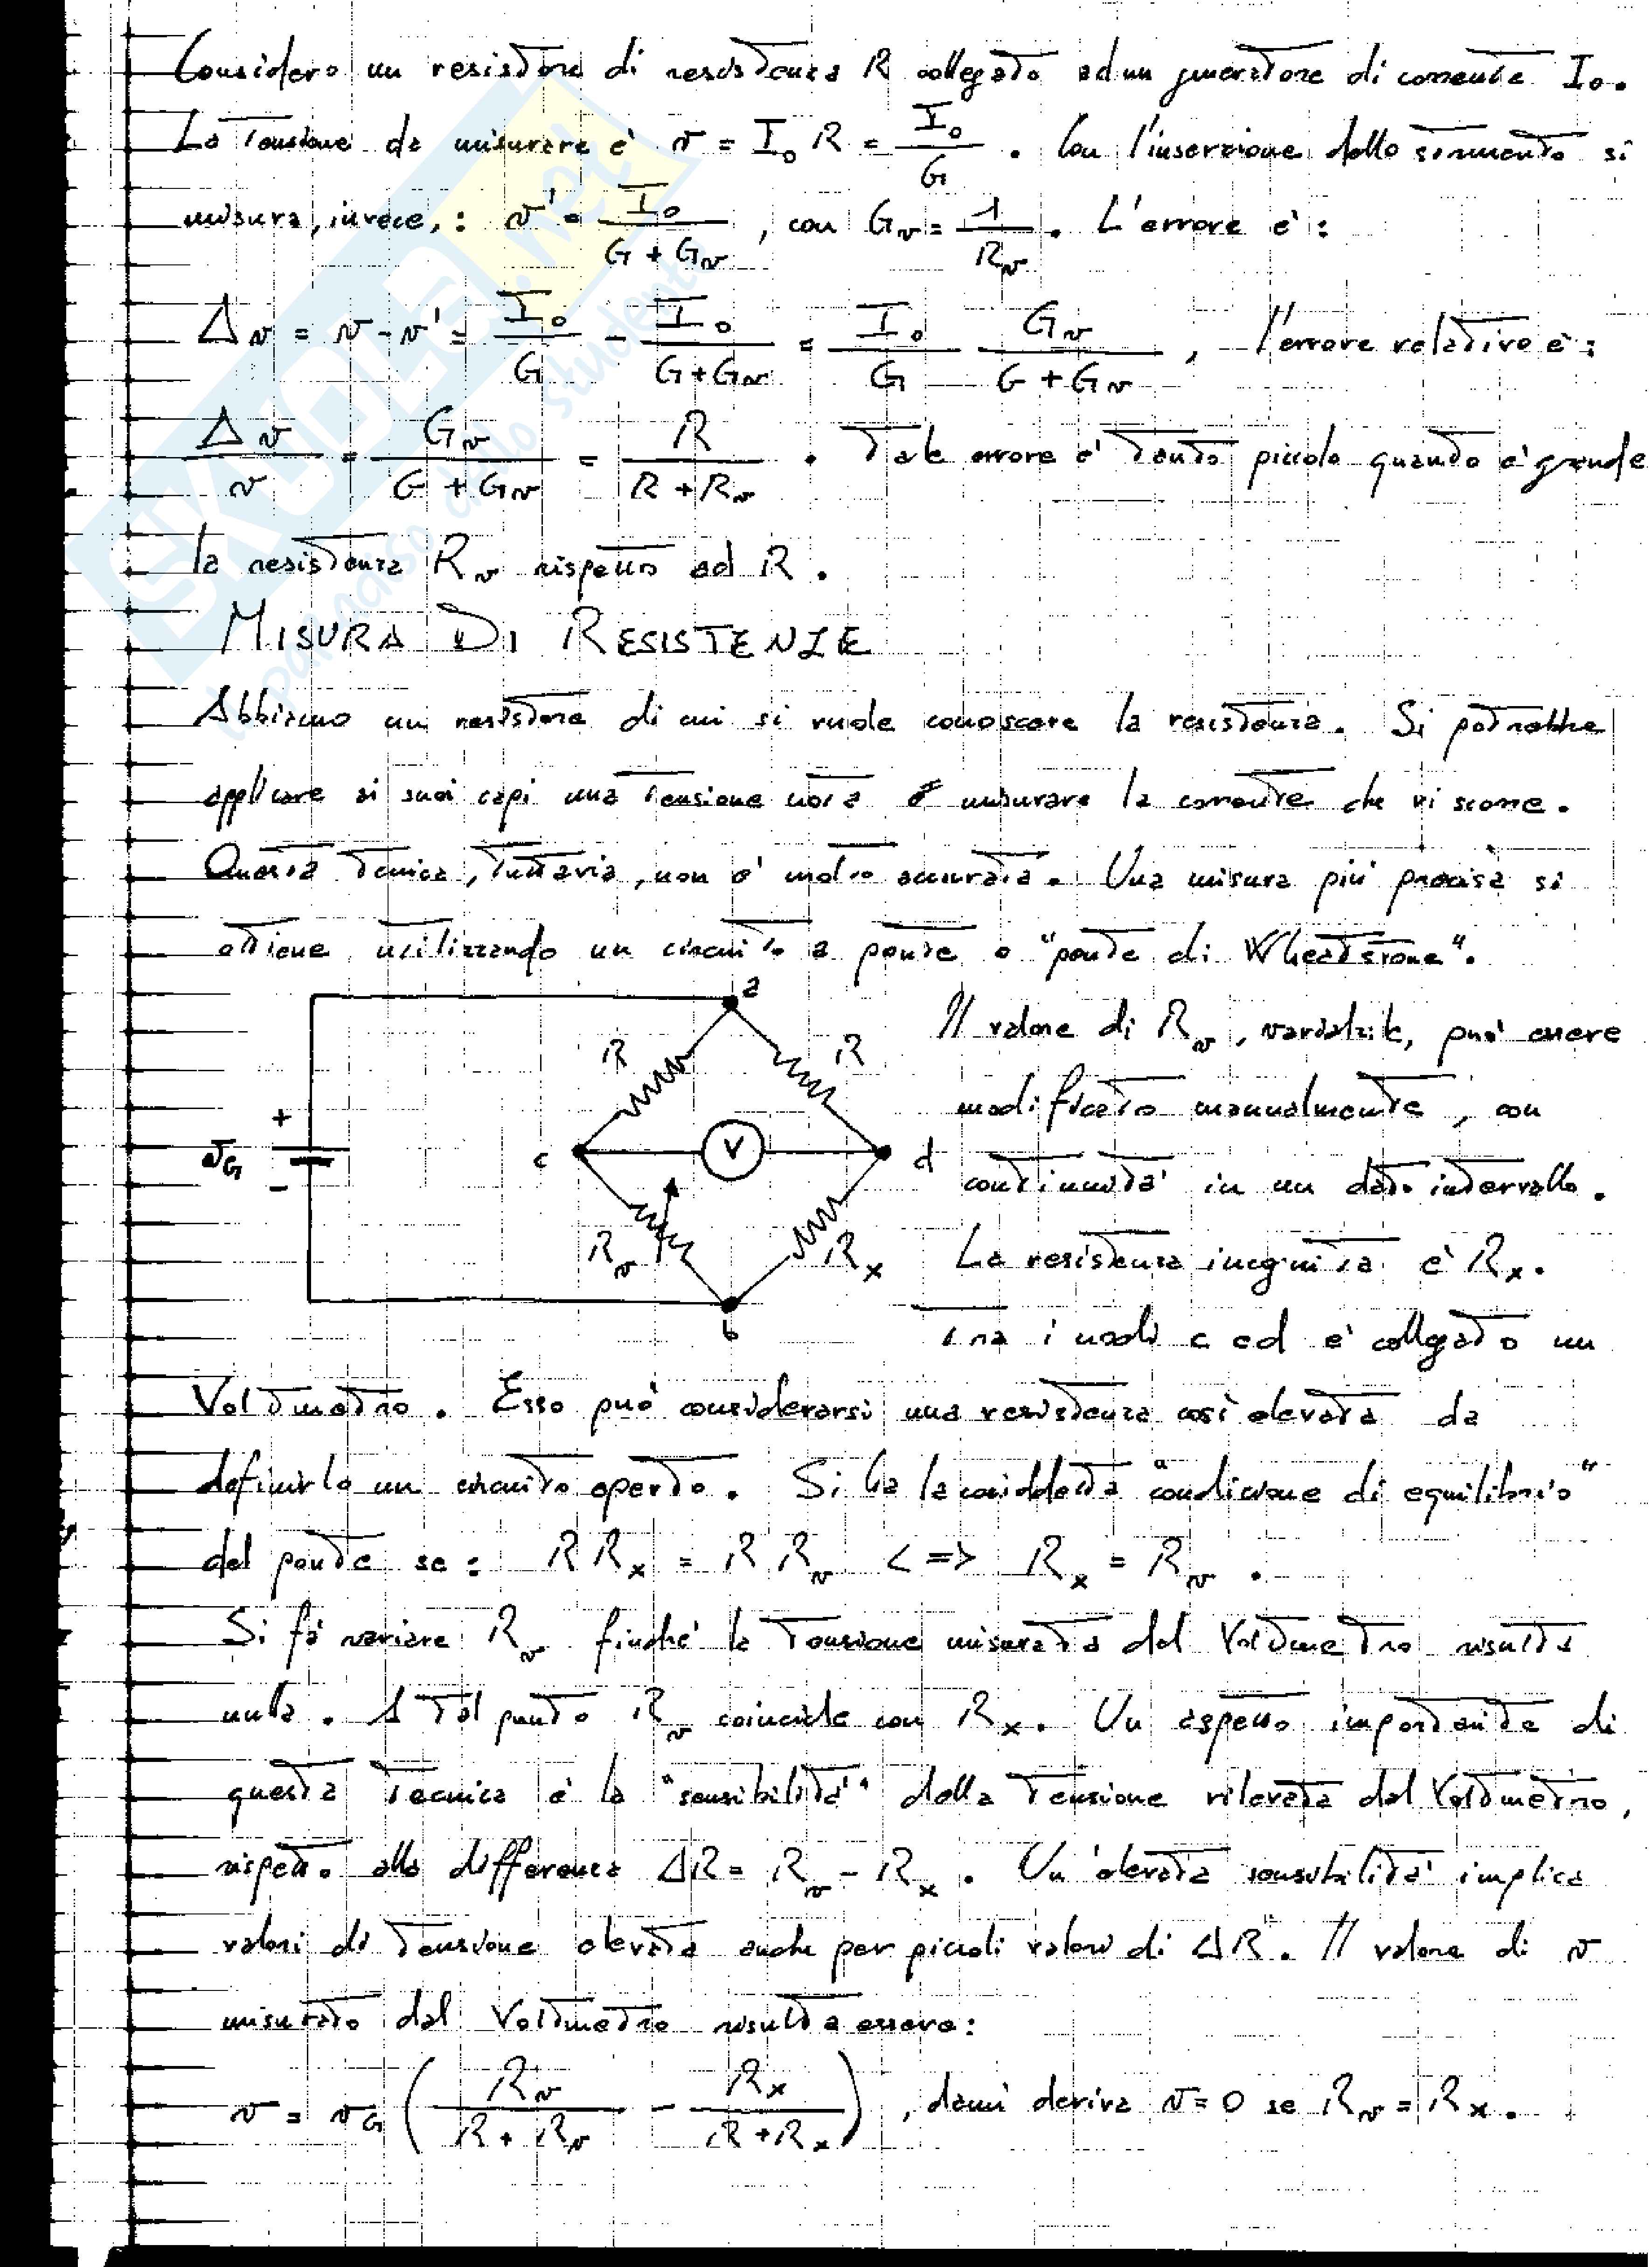 Considero un resistore di resistenza R collegato ad un generatore di corrente I₀.
La tensione da misurare è v = I₀ R = I₀/G . Con l'inserzione dello strumento si
misura, invece, : v' = I₀/(G + Gᵥ) , con Gᵥ = 1/Rᵥ . L'errore è :
Δv = v - v' = I₀/G - I₀/(G+Gᵥ) = I₀/G Gᵥ/(G + Gᵥ) , l'errore relativo è :
Δv/v = Gᵥ/(G + Gᵥ) = R/(R + Rᵥ) . Tale errore è tanto piccolo quando è grande
la resistenza Rᵥ rispetto ad R .
MISURA DI RESISTENZE
Abbiamo un resistore di cui si vuole conoscere la resistenza. Si potrebbe
applicare ai suoi capi una tensione nota e misurare la corrente che vi scorre.
Questa tecnica, tuttavia, non è molto accurata. Una misura più precisa si
ottiene utilizzando un circuito a ponte o "ponte di Wheatstone".
a
R
R
+
v_G
-
c
V
d
Rᵥ
Rₓ
b
Il valore di Rᵥ, variabile, può essere
modificato manualmente, con
continuità in un dato intervallo.
La resistenza incognita è Rₓ.
Tra i nodi c e d è collegato un
Voltmetro. Esso può considerarsi una resistenza così elevata da
definirlo un circuito aperto. Si ha la cosiddetta "condizione di equilibrio"
del ponte se : R Rₓ = R Rᵥ <=> Rₓ = Rᵥ .
Si fa variare Rᵥ finché la tensione misurata dal Voltmetro risulta
nulla. A tal punto Rᵥ coincide con Rₓ. Un aspetto importante di
questa tecnica è la "sensibilità" della tensione rilevata dal Voltmetro,
rispetto alla differenza ΔR = Rᵥ - Rₓ. Un'elevata sensibilità implica
valori di tensione elevata anche per piccoli valori di ΔR. Il valore di v
misurato dal Voltmetro risulta essere:
v = v_G ( Rᵥ/(R + Rᵥ) - Rₓ/(R + Rₓ) ) , da cui deriva v = 0 se Rᵥ = Rₓ.